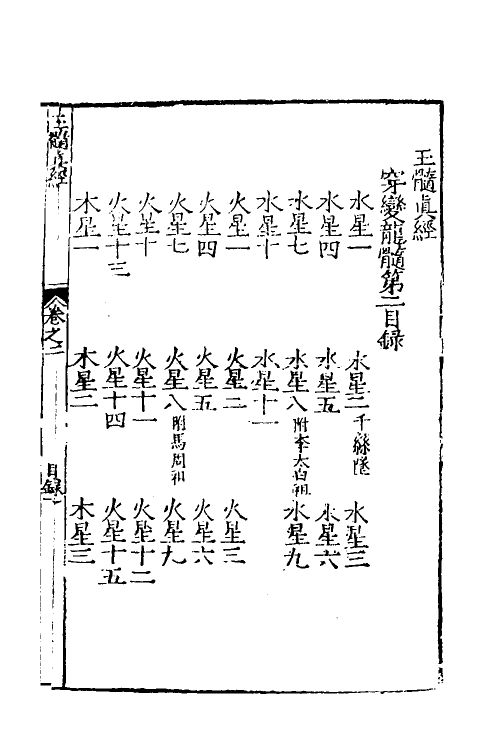 玉髓眞經
穿變龍髓第二目錄
水星一 水星二千絲墜 水星三
水星四 水星五 水星六
水星七 水星八附李太白祖 水星九
水星十 水星十一
火星一 火星二 火星三
火星四 火星五 火星六
火星七 火星八附馬周祖 火星九
火星十 火星十一 火星十二
火星十三 火星十四 火星十五
木星一 木星二 木星三
玉髓眞經 卷之二 目錄